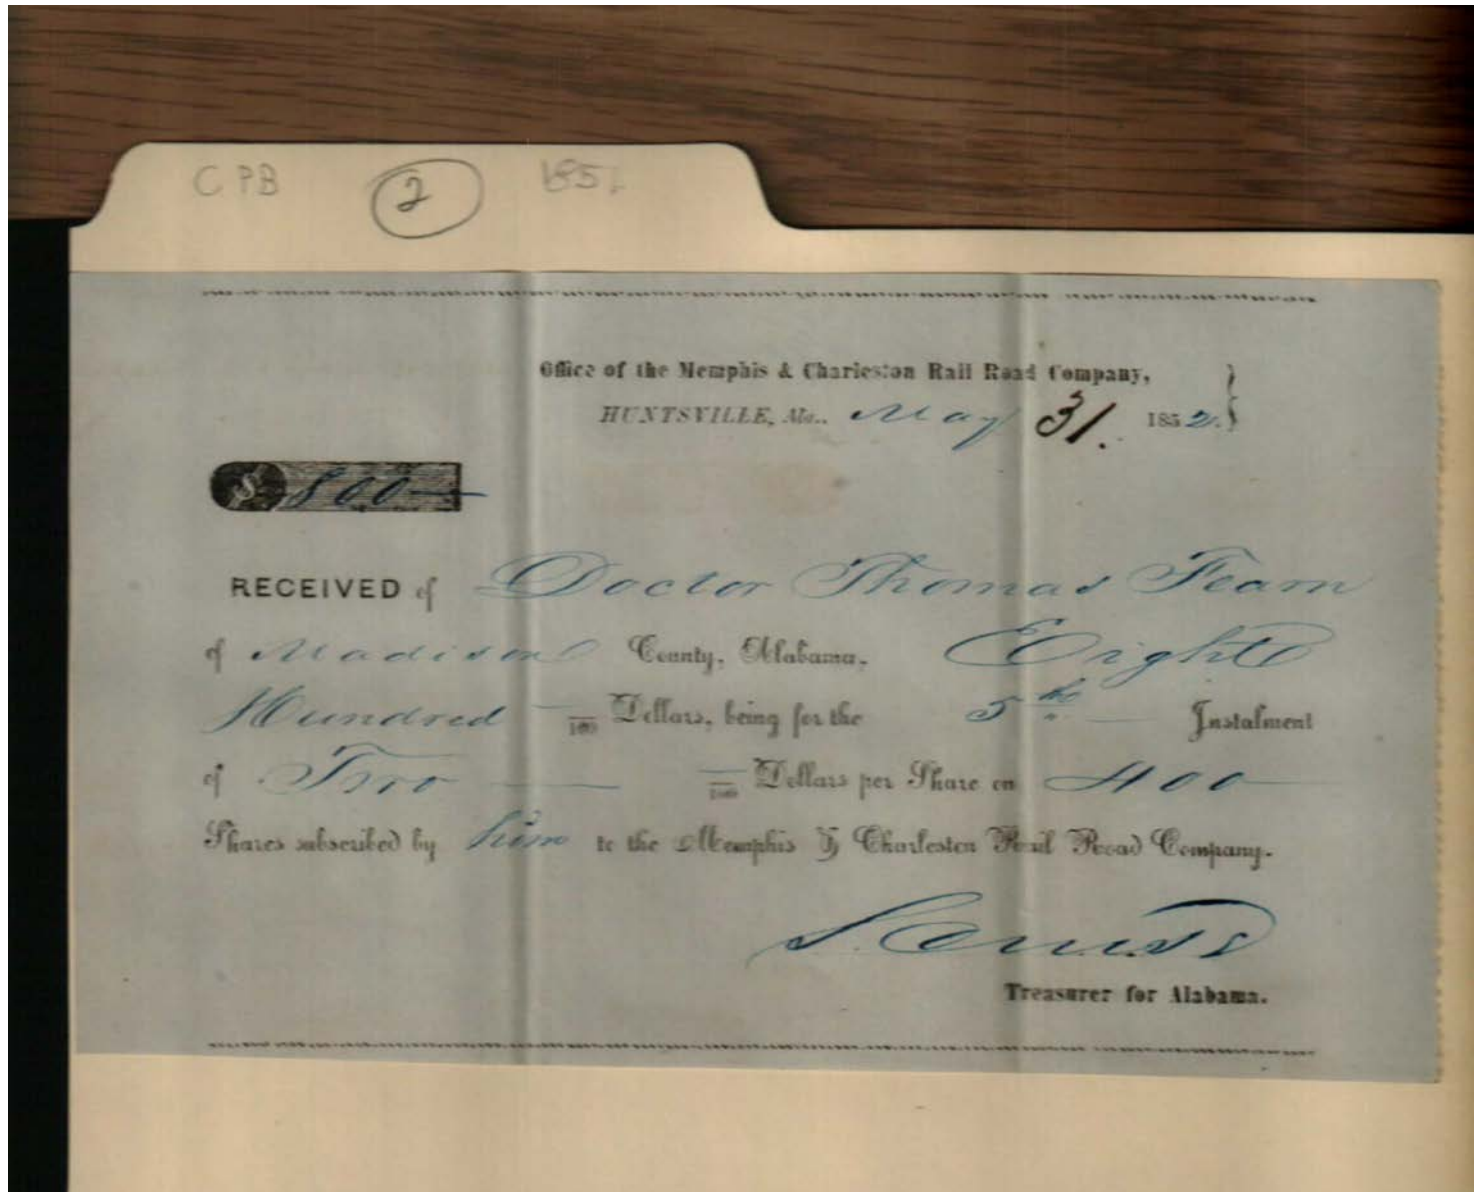 CPB 2 185
Office of the Memphis & Charleston Rail Road Company,
HUNTSVILLE, Ala., May 31. 1852.
$ 800
RECEIVED of Doctor Thomas Fearn
of Madison County, Alabama, Eight
Hundred /100 Dollars, being for the 5th Instalment
of Two /100 Dollars per Share on 400
Shares subscribed by him to the Memphis & Charleston Rail Road Company.
Treasurer for Alabama.